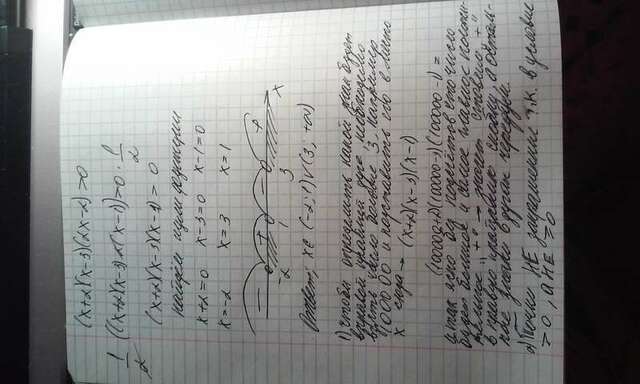 (x+2)(x-3)(2x-2)>0
1/2 ((x+2)(x-3)2(x-1))>0 · 1/2
(x+2)(x-3)(x-1)>0
найдём нули функции
x+2=0 x-3=0 x-1=0
x=-2 x=3 x=1
- + - +
-2 1 3 x
Ответ; x∈ (-2;1)∨(3; +∞)
1) чтобы определить какой знак будет
в правой крайней дуге, необходимо
взять число больше 3, например
100000 и подставить его в место
x сюда→ (x+2)(x-3)(x-1)
(100000+2)(100000-3)(100000-1)=
и так ясно без подсчётов сто число
будет большое и самое главное положи-
тельное "+" → значит ставим "+"
в правую крайнюю скобку, а осталь-
ные знаки в дугах чередуем.
2) Точки НЕ закрашенные т.к. в условие
>0, а НЕ ≥0